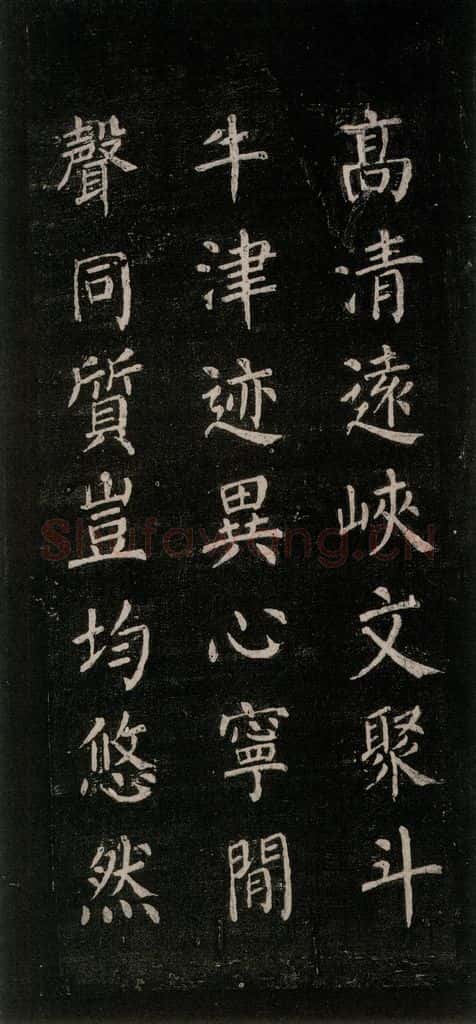 高清遠峽文聚斗
牛津迹異心寧間
聲同質豈均悠然
Shufawang.CN